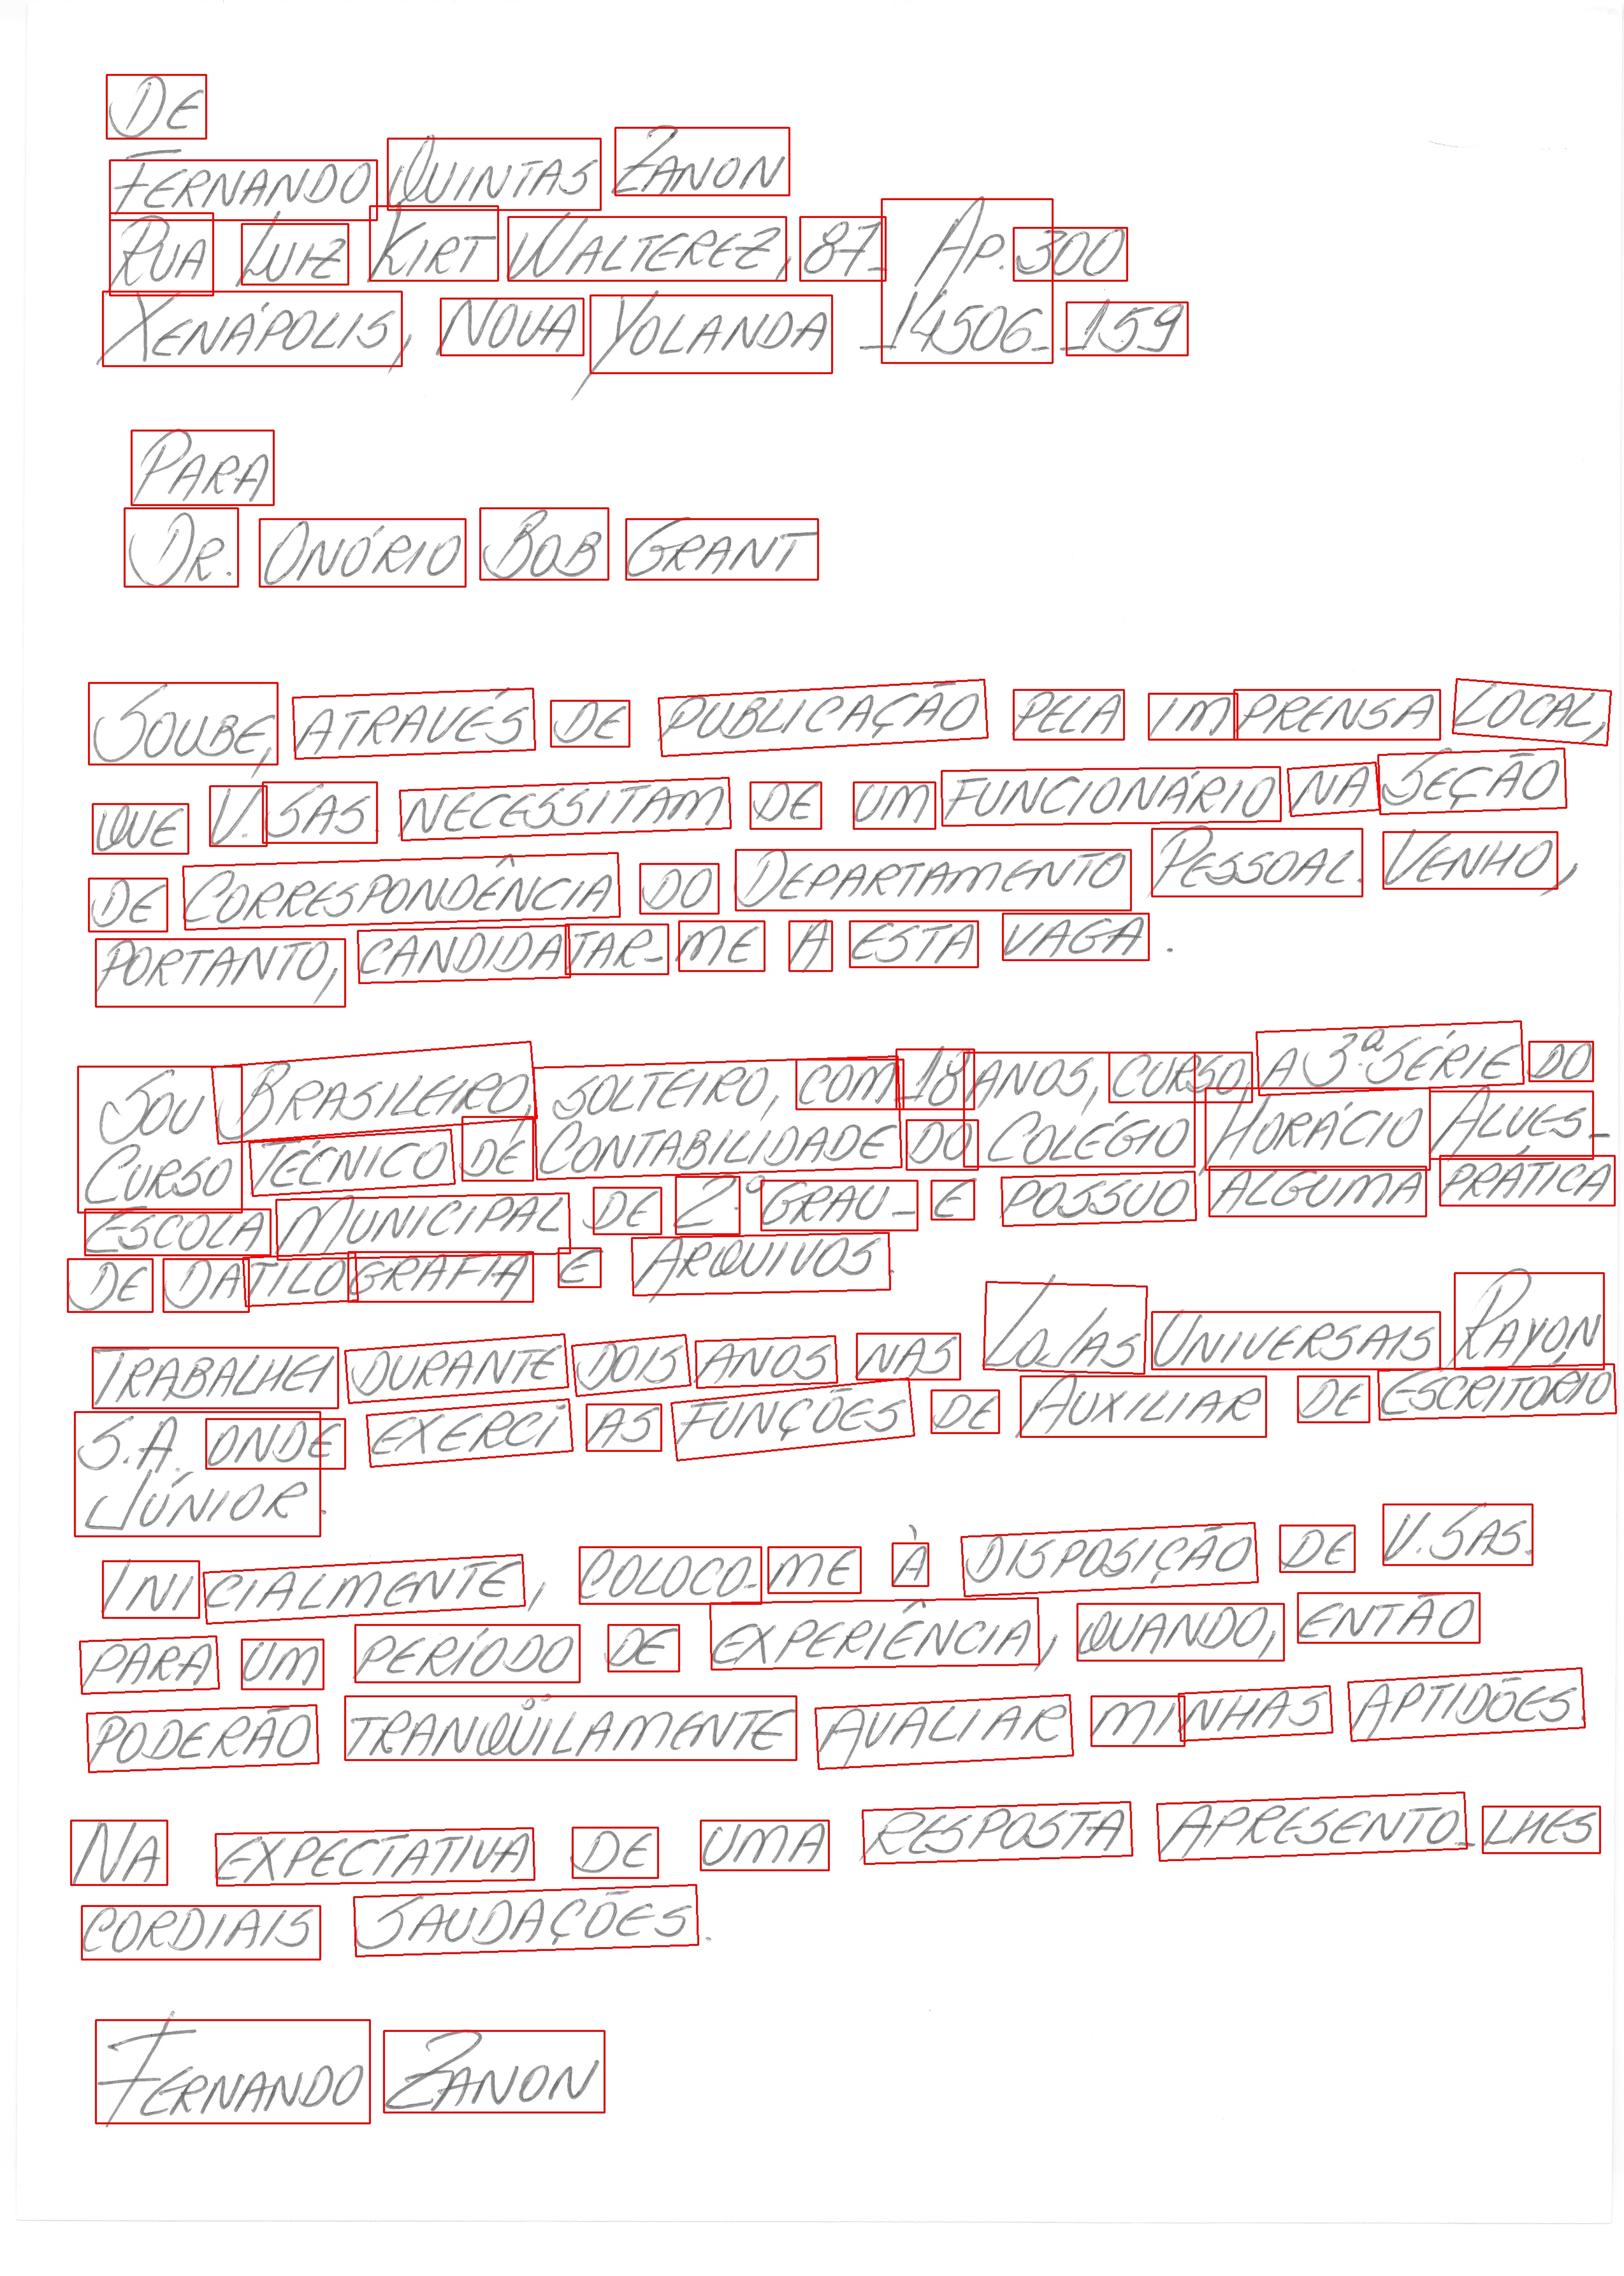 De
Fernando Quintas Zanon
Rua Luiz Kirt Walterez, 87- Ap. 300
Xenápolis, Nova Yolanda -14506-159
Para
Dr. Onório Bob Grant
Soube, através de publicação pela imprensa local,
que V.Sas necessitam de um funcionário na Seção
de Correspondência do Departamento Pessoal. Venho,
portanto, candidatar-me a esta vaga.
Sou Brasileiro, solteiro, com 18 anos, curso a 3ª série do
Curso Técnico de Contabilidade do Colégio Horácio Alves-
Escola Municipal de 2º Grau- e possuo alguma prática
de datilografia e Arquivos.
Trabalhei durante dois anos nas Lojas Universais Rayon
S.A. onde exerci as funções de Auxiliar de Escritório
Júnior.
Inicialmente, coloco-me à disposição de V.Sas.
para um período de experiência, quando, então
poderão tranqüilamente avaliar minhas aptidões.
Na expectativa de uma resposta apresento-lhes
cordiais saudações.
Fernando Zanon